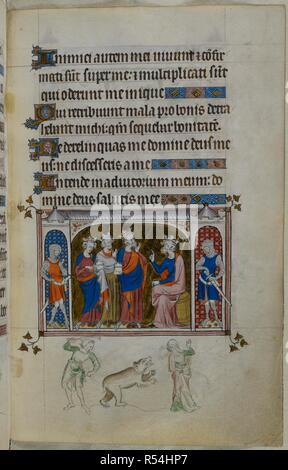 Inimici autem mei vivunt & cõfir
mati sũt super me: & multiplicati sũt
qui oderunt me inique
Qui retribuunt mala pro bonis detra
hebant michi: qm̃ sequebar bonitatem.
Ne derelinquas me domine deus me
us: ne discesseris a me
Intende in adiutorium meum: do
mine deus salutis mee
alamy
Image ID: R54HP7
www.alamy.com